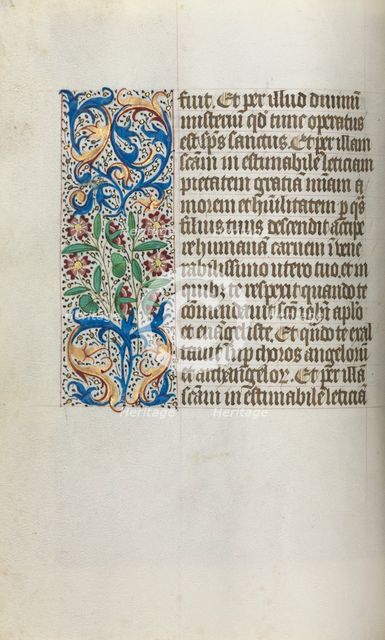 fuit. Et per illud diuinū
misteriū qd tunc operatus
est sp̄s sanctus. Et per illam
scām inestimabilē leticiam
pietatem gratiā mīam a
morem et hūilitatem p qs
filius tuus descendit accipe
re humanā carnem ī vene
rabilissimo utero tuo. et in
quibꝫ te respexit quando te
comendauit scō iohī aplo
et euāgeliste. Et qn̄do te exal
tauit sup choros angelorū
et archangelor. Et per illā
scām inestimabilē leticiā
Heritage
Heritage
Heritage
Heritage